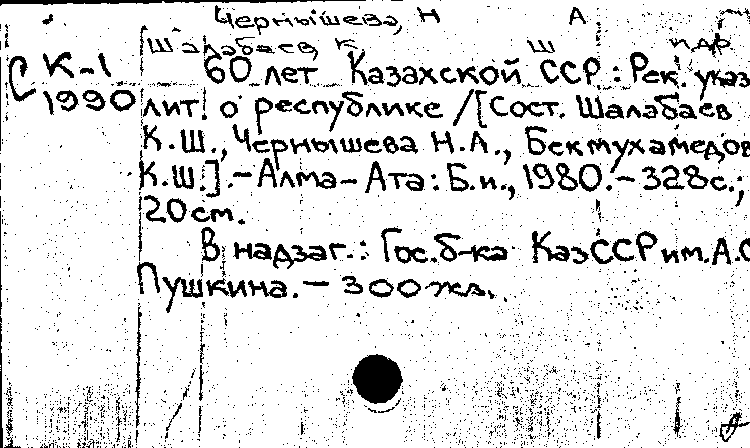 Чернышева, Н А
Шалабаев К Ш и др
С К-1 60 лет Казахской ССР : Рек. указ.
1990 лит. о республике /[Сост. Шалабаев
К.Ш., Чернышева Н.А., Бекмухамедов
К.Ш.].-Алма-Ата: Б.и., 1980.-328с.;
20см.
В надзаг.: Гос.б-ка КазССР им.А.С
Пушкина.- 300